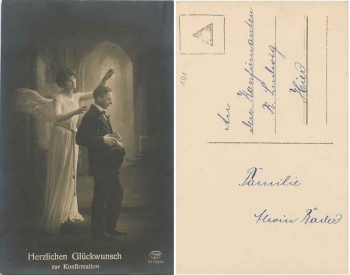 Herzlichen Glückwunsch
zur Konfirmation
An
den Konfirmanten
R. Ludwig
Hier
Familie